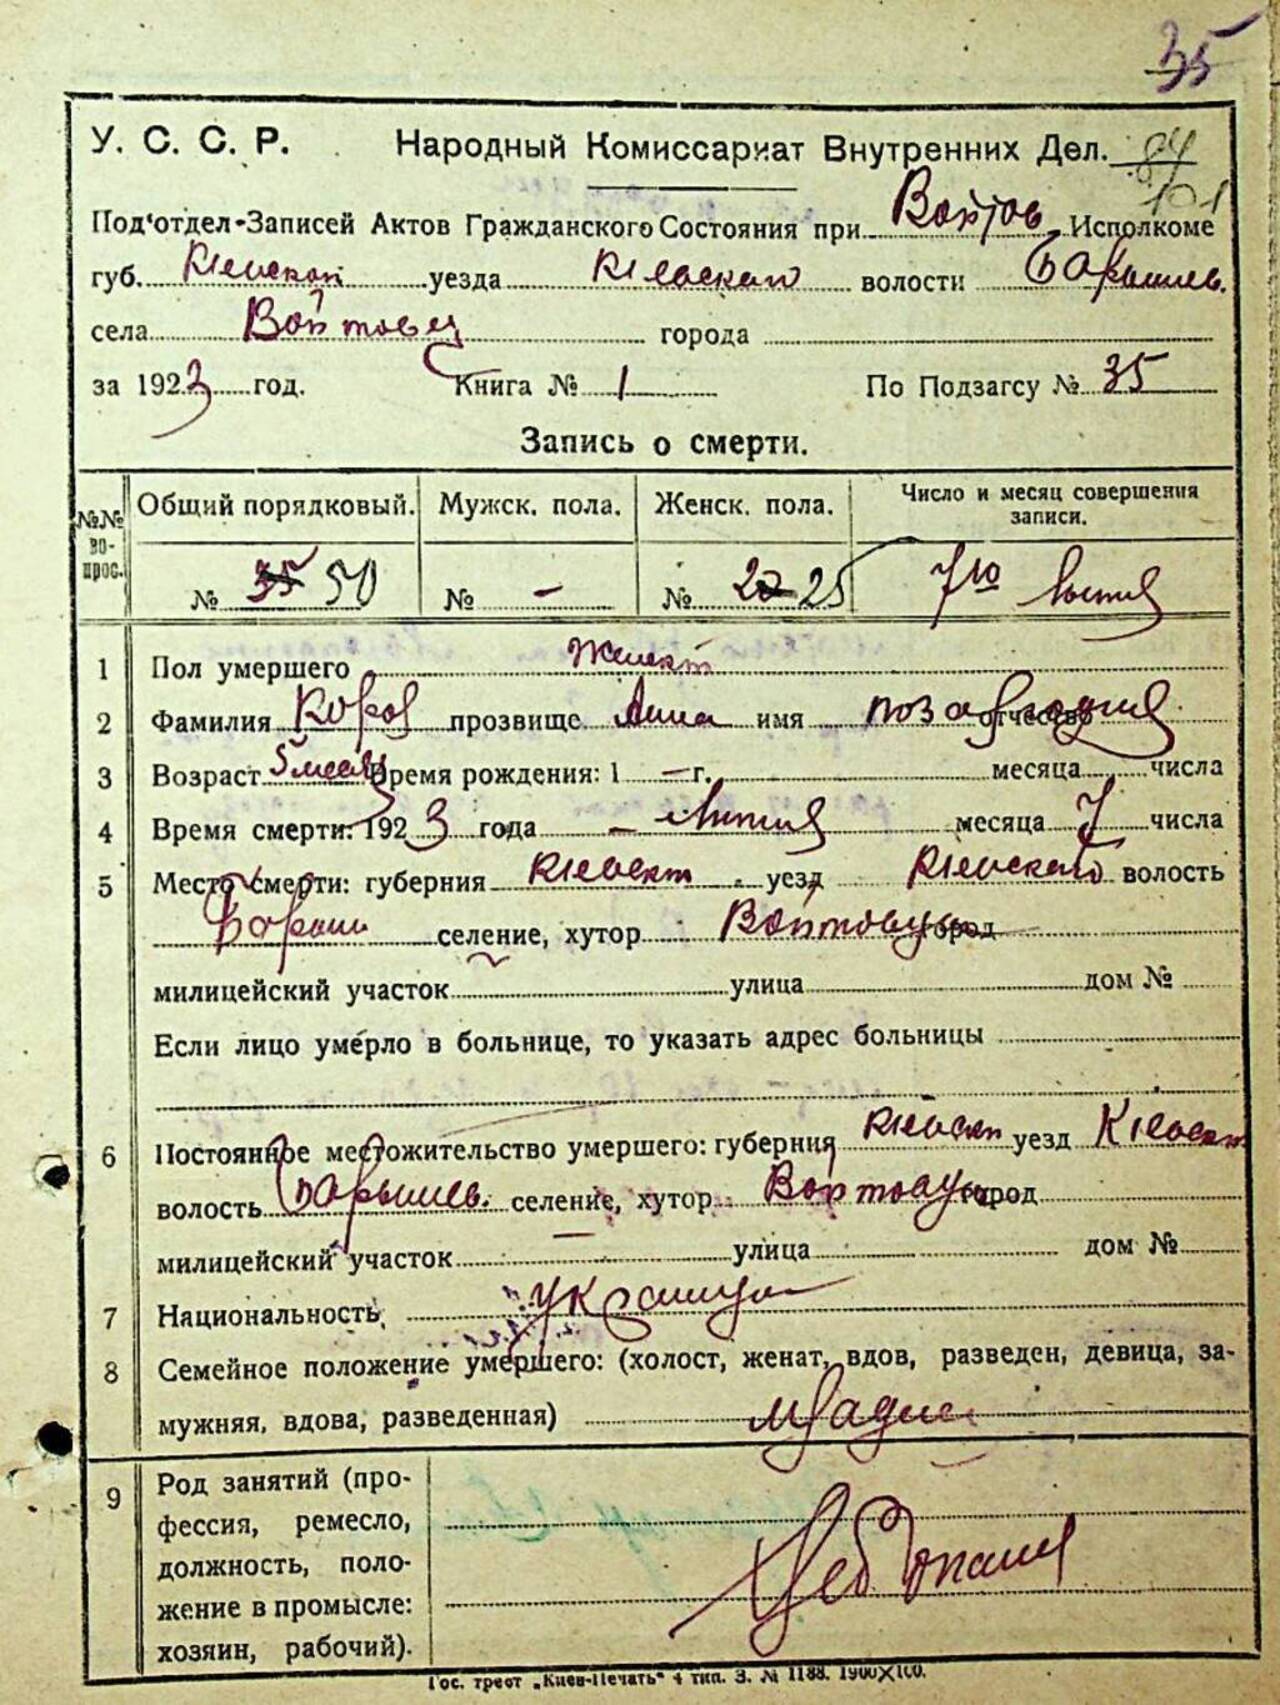 35
У. С. С. Р. Народный Комиссариат Внутренних Дел. 84
101
Под'отдел-Записей Актов Гражданского Состояния при Войтов. Исполкоме
губ. Киевской уезда Киевского волости Барышев.
села Войтовец города
за 1923 год. Книга № 1 По Подзагсу № 35
Запись о смерти.
№№ во-прос. Общий порядковый. Мужск. пола. Женск. пола. Число и месяц совершения записи.
№ 35 50 № - № 22 25 7го
1 Пол умершего Женск
2 Фамилия прозвище Анна имя отчество
3 Возраст 5 Время рождения: 1 - г. месяца числа
4 Время смерти: 1923 года - месяца 7 числа
5 Место смерти: губерния Киевск уезд Киевского волость
Барыш селение, хутор Войтовцы город
милицейский участок улица дом №
Если лицо умерло в больнице, то указать адрес больницы
6 Постоянное местожительство умершего: губерния Киевск уезд Киевск
волость Барышев. селение, хутор Войтовцы город
милицейский участок — улица дом №
7 Национальность
8 Семейное положение умершего: (холост, женат, вдов, разведен, девица, за-
мужняя, вдова, разведенная)
9 Род занятий (про-
фессия, ремесло,
должность, поло-
жение в промысле:
хозяин, рабочий).
Гос. трест „Киев-Печать" 4 тип. З. № 1188. 1900X100.